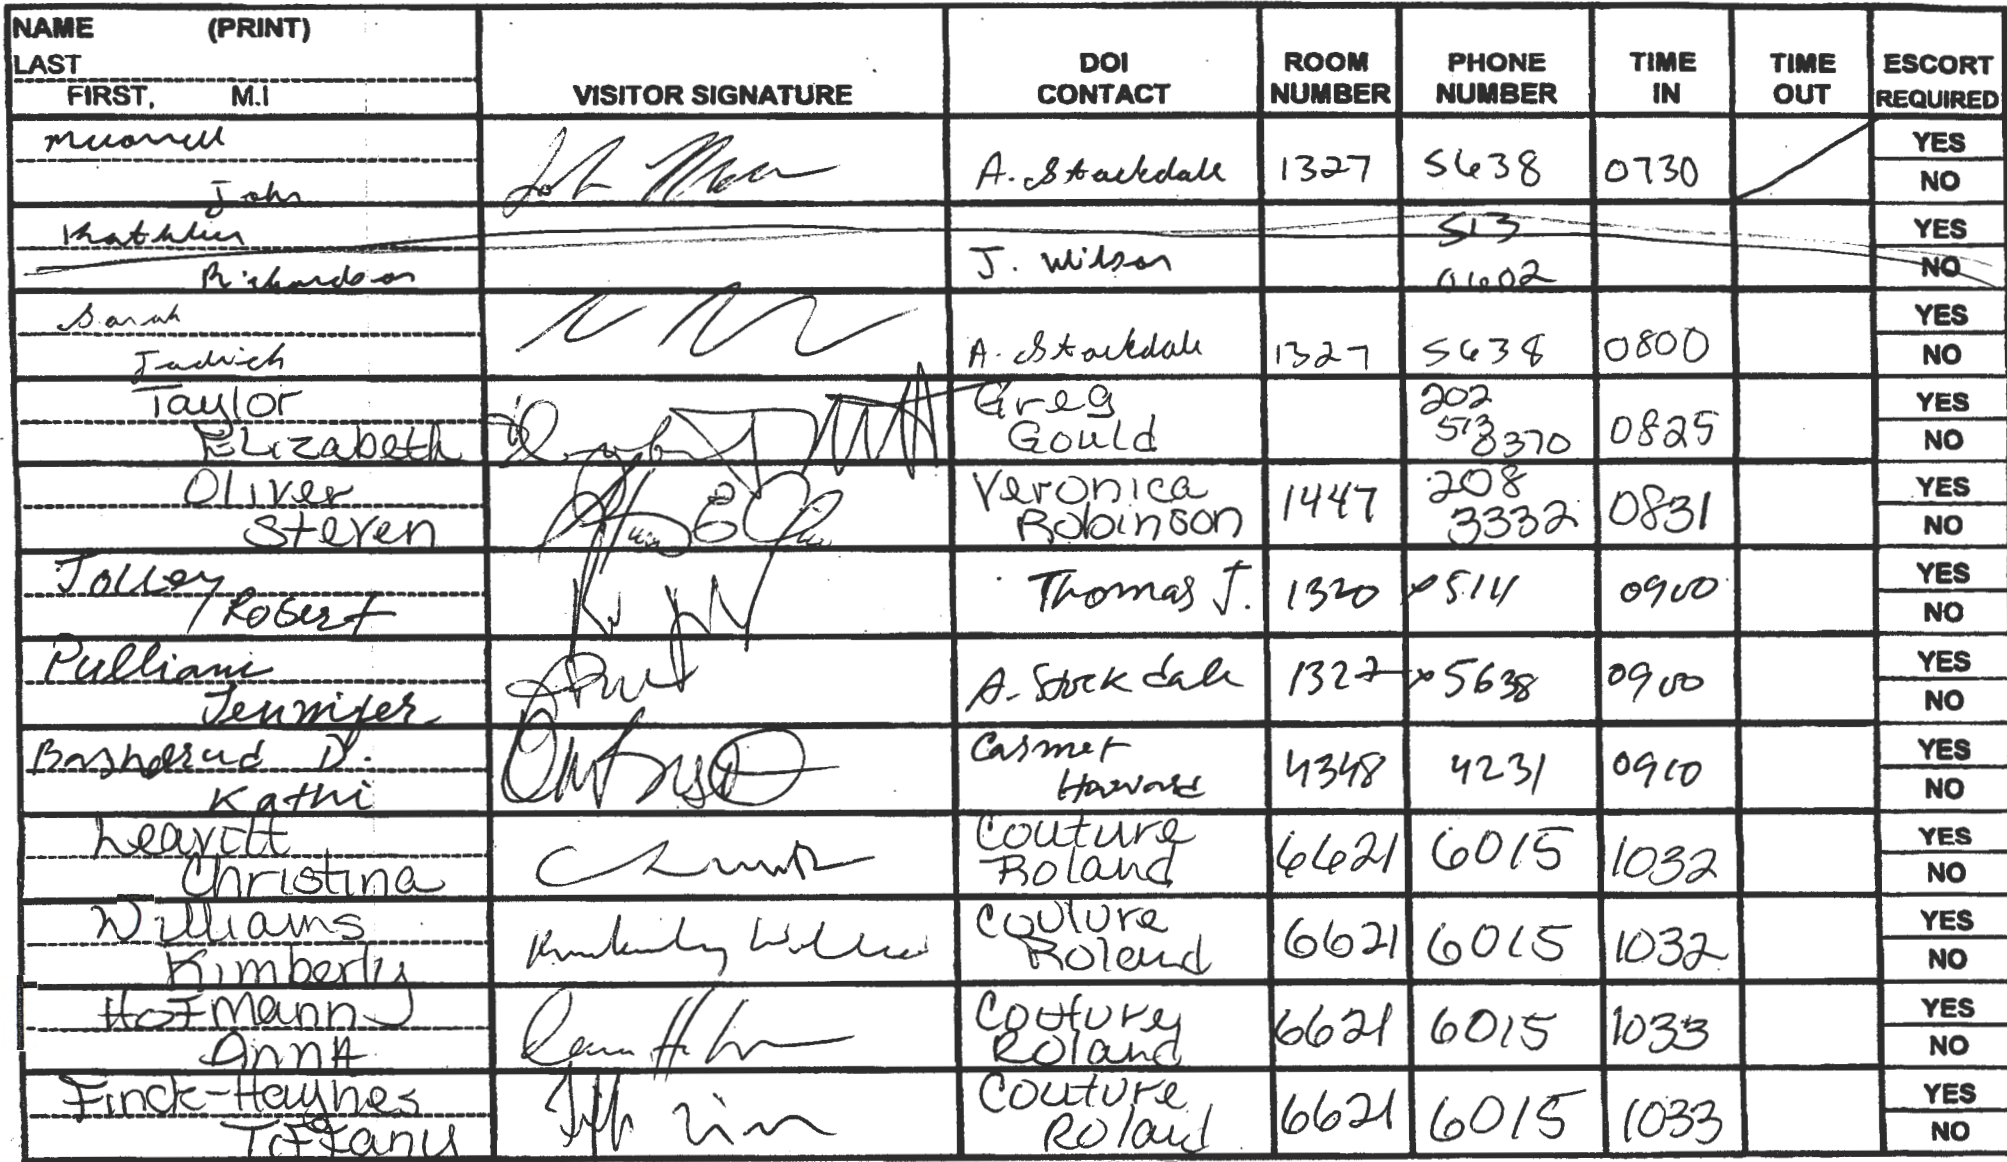 NAME (PRINT)
LAST
FIRST, M.I
VISITOR SIGNATURE
DOI CONTACT
ROOM NUMBER
PHONE NUMBER
TIME IN
TIME OUT
ESCORT REQUIRED
John
A. Stockdale 1327 5638 0730 YES NO
Kathleen
Richardson
J. Wilson 513 YES NO
Sarah
A. Stockdale 1327 5638 0800 YES NO
Taylor
Elizabeth
Greg
Gould
202
513
8370
0825 YES NO
Oliver
Steven
Veronica
Robinson
1447
208
3332
0831 YES NO
Jolley
Robert
Thomas J. 1320 x5111 0900 YES NO
Pulliam
Jennifer
A. Stockdale 1327 x5638 0900 YES NO
D.
Kathi
4348 4231 0910 YES NO
Leavitt
Christina
Couture
Roland
6621 6015 1032 YES NO
Williams
Kimberly
Kimberly
Couture
Roland
6621 6015 1032 YES NO
Hofmann
Anna
Couture
Roland
6621 6015 1033 YES NO
Finck-Haynes
Tiffany
Couture
Roland
6621 6015 1033 YES NO